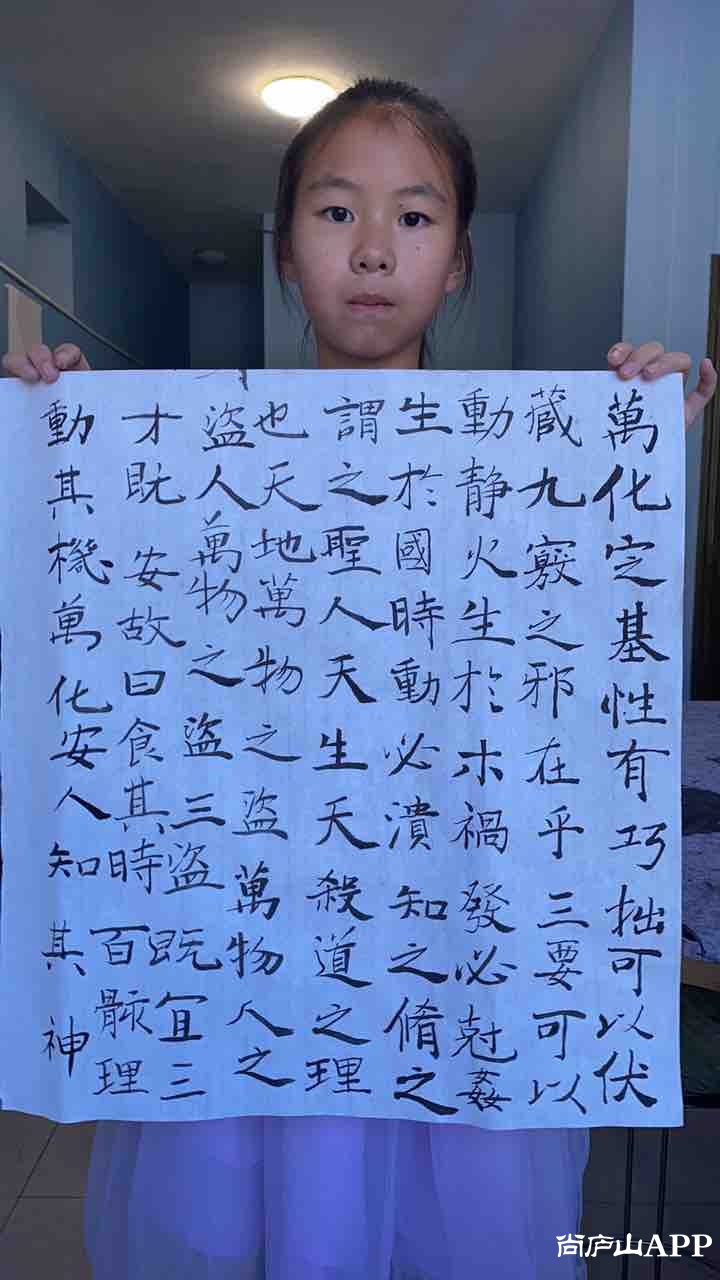 萬化定基性有巧拙可以伏
藏九竅之邪在乎三要可以
動静火生於木禍發必尅姦
生於國時動必潰知之脩之
謂之聖人天生天殺道之理
也天地萬物之盜萬物人之
盜人萬物之盜三盜既宜三
才既安故曰食其時百骸理
動其機萬化安人知其神
尚庐山APP